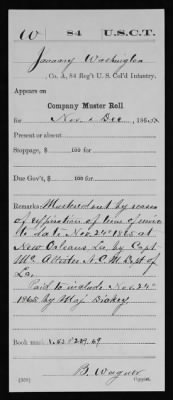 W | 84 | U.S.C.T.
January Washington
, Co. A, 84 Reg't U. S. Col'd Infantry.
Appears on
Company Muster Roll
for Nov. & Dec., 1865.
Present or absent
Stoppage, $ 100 for
Due Gov't, $ 100 for
Remarks: Mustered out by reason
of expiration of term of service
to date Nov. 24" 1865 at
New Orleans La, by Capt
A. C. M. Dept of
La.
Paid to include Nov. 24"
1865 by Maj
Book mark:
B. Wagner
(358) Copyist.